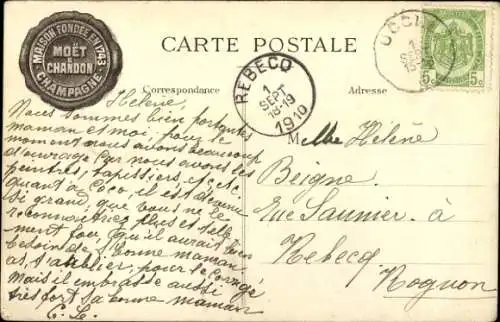 MAISON FONDÉE EN 1743
MOËT
&
CHANDON
CHAMPAGNE
CARTE POSTALE
Correspondance
Adresse
REBECQ
1
SEPT
18-19
1910
5c 5c
Hélène,
Nous sommes bien portantes
maman et moi; pour le
moment nous avons beaucoup
d'ouvrage car nous avons les
peintres, tapissiers, etc, etc.
Quant à Coco, il est devenu
si grand, que vous ne le
reconnaîtriez plus et telle-
ment fou qu'il aurait bien
besoin de sa bonne maman
pour le corrigé
Mais il embrasse aussi
très fort sa bonne maman
Melle Hélène
Beigne
Rue Saunier. à
Rebecq
Rognon